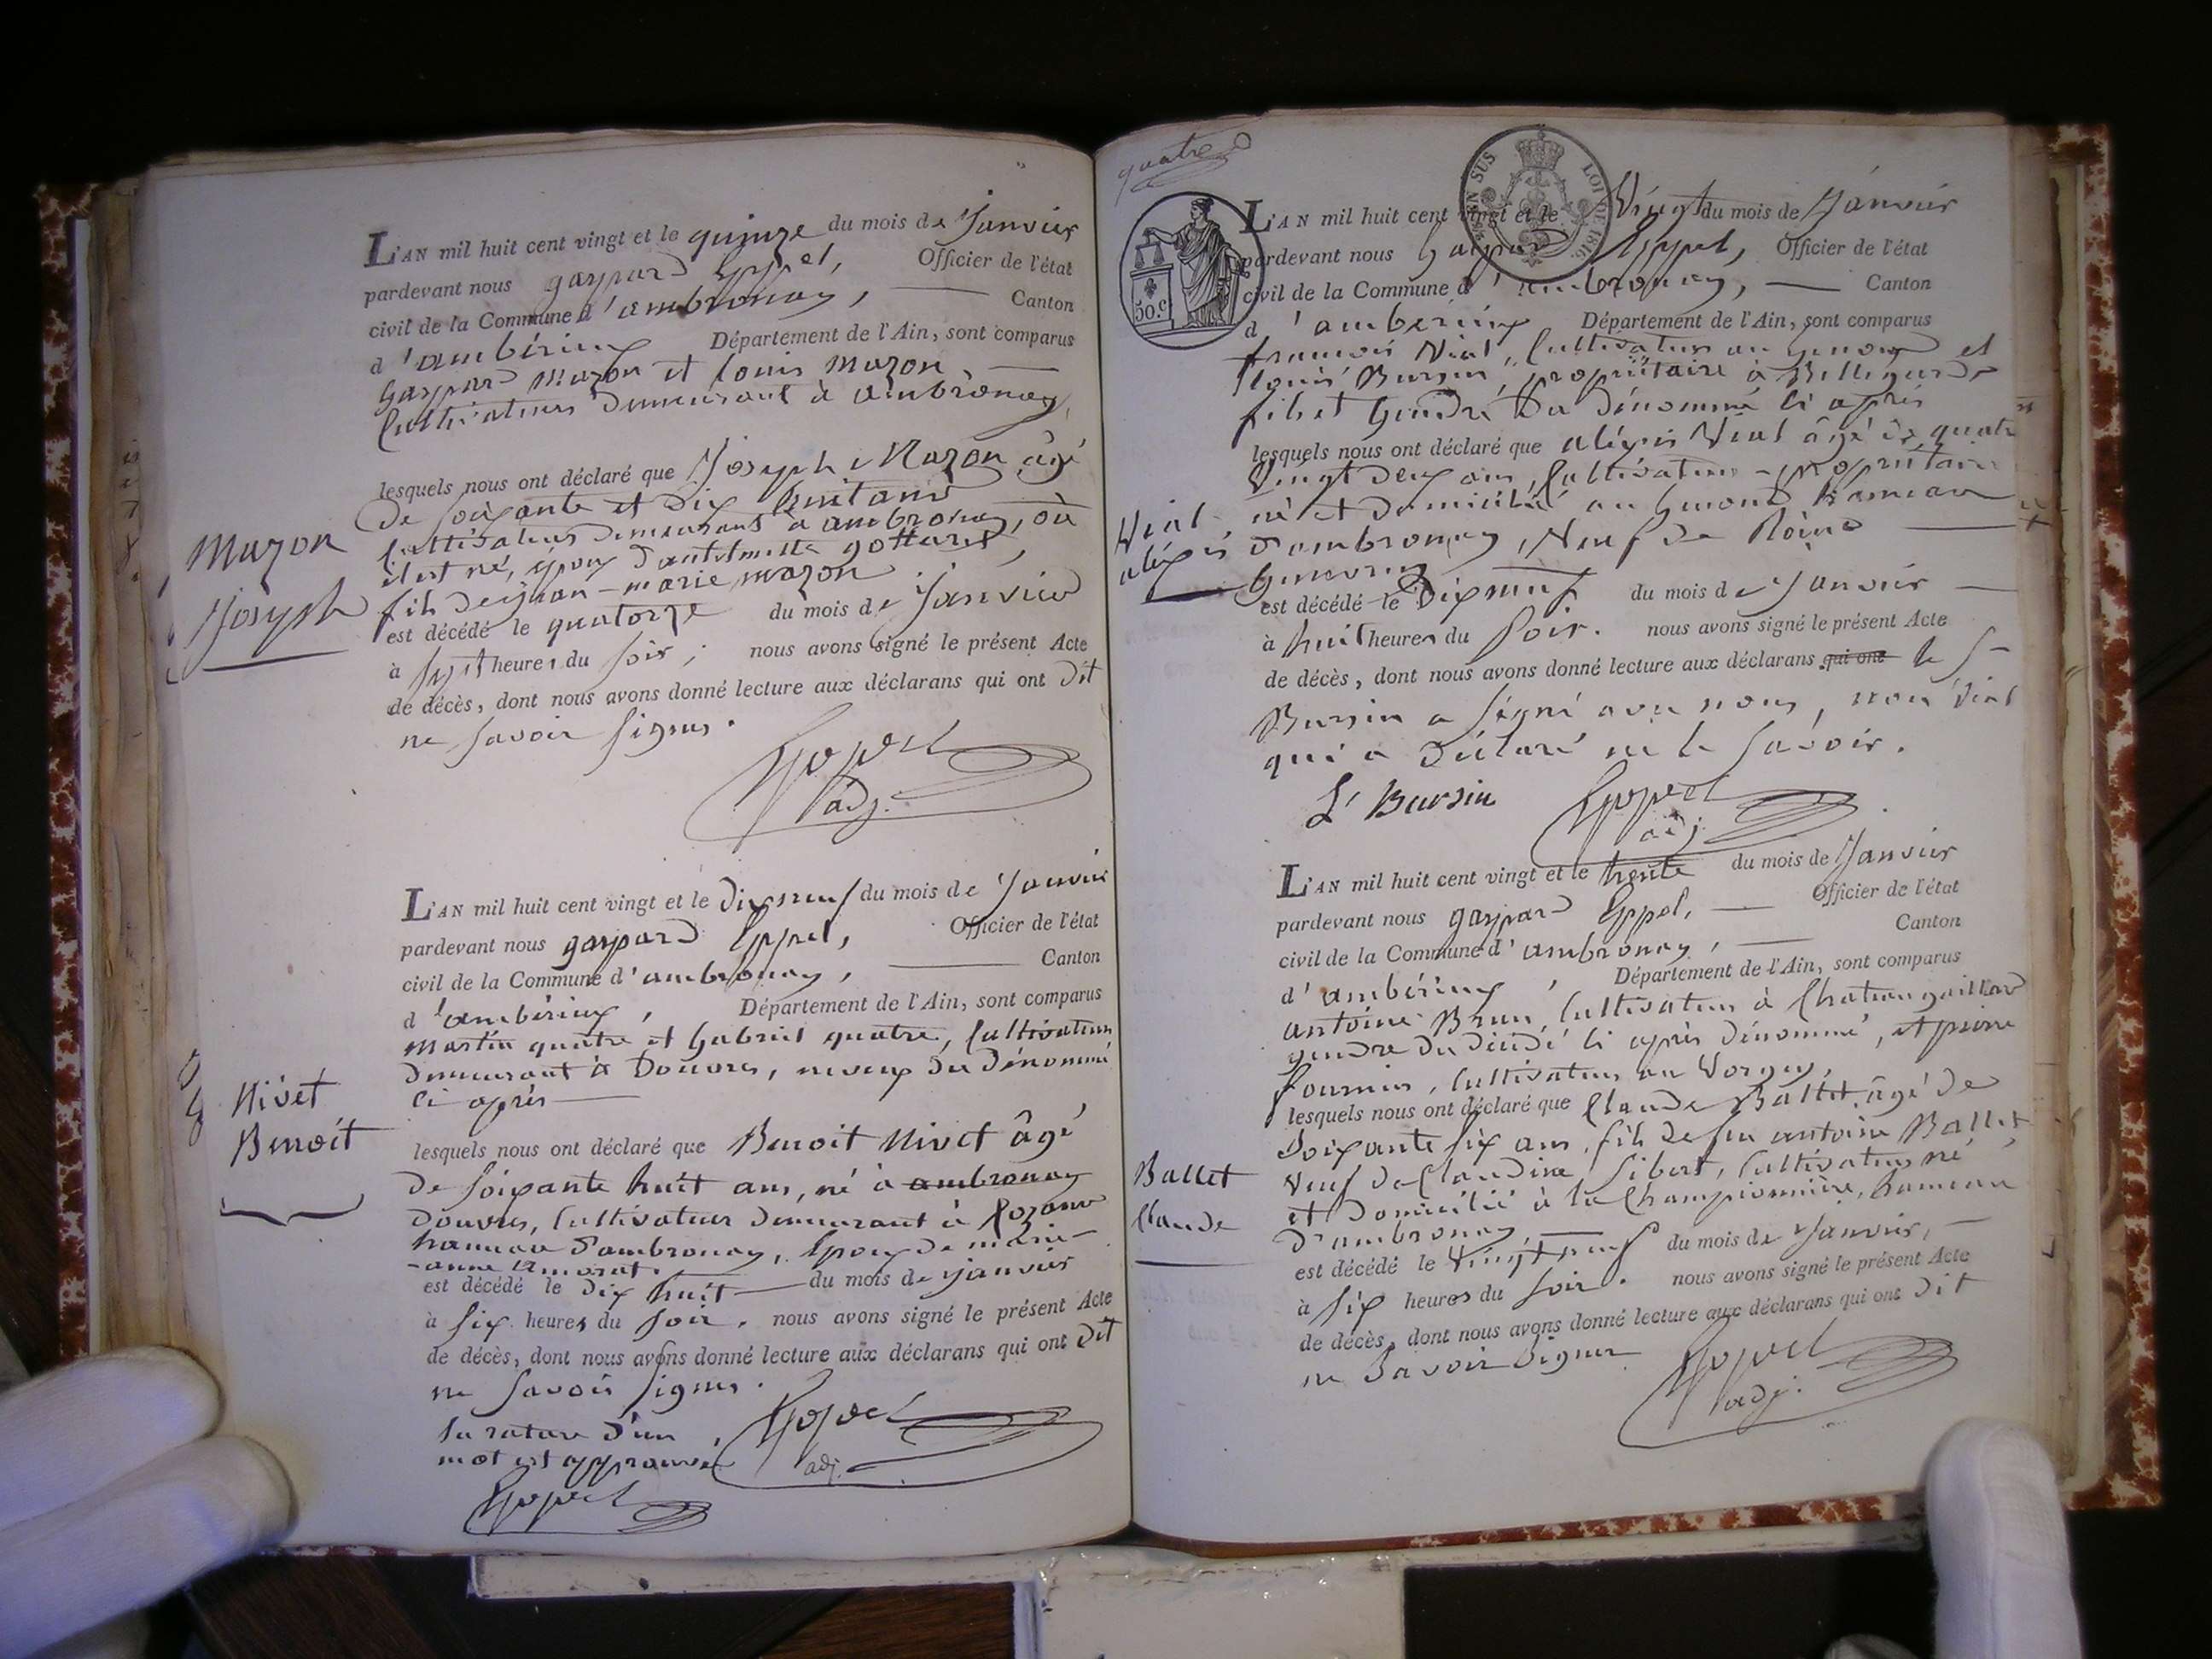 L'AN mil huit cent vingt et le quinze du mois de Janvier
pardevant nous gaspard Eppel, Officier de l'état
civil de la Commune d'ambronay, Canton
d'ambérieux Département de l'Ain, sont comparus
Gaspard Mazon et Louis Mazon
Cultivateurs demeurant à ambronay,
lesquels nous ont déclaré que Joseph Mazon âgé
de soixante et dix huit ans
Cultivateur demeurant à ambronay, où
il est né, époux d'anthelmette gottaret,
fils de jean-marie mazon
est décédé le quatorze du mois de Janvier
à sept heures du soir; nous avons signé le présent Acte
de décès, dont nous avons donné lecture aux déclarans qui ont dit
ne savoir signer.
Eppel
adj.
Mazon
Joseph
L'AN mil huit cent vingt et le dix neuf du mois de Janvier
pardevant nous gaspard Eppel, Officier de l'état
civil de la Commune d'ambronay, Canton
d'ambérieux, Département de l'Ain, sont comparus
Martin quatre et Gabriel quatre, Cultivateurs
demeurant à Douvres, neveux du dénommé
ci après
lesquels nous ont déclaré que Benoit Nivet âgé
de soixante huit ans, né à ambronay
Douvres, Cultivateur demeurant à
hameau d'ambronay, Epoux de marie-
-anne
est décédé le dix huit du mois de janvier
à six heures du soir. nous avons signé le présent Acte
de décès, dont nous avons donné lecture aux déclarans qui ont dit
ne savoir signer.
La rature d'un
mot est approuvée
Eppel
adj.
Eppel
Nivet
Benoit
quatre
50 c.
LOI DE 1816.
L'AN mil huit cent vingt et le Vingt du mois de Janvier
pardevant nous Gaspard Eppel, Officier de l'état
civil de la Commune d'ambronay, Canton
d'ambérieux Département de l'Ain, sont comparus
francois Vial, Cultivateur au Genoud et
Louis Bursin, propriétaire à Bellegarde
fils et Gendre du dénommé ci après
lesquels nous ont déclaré que aléxis Vial âgé de quatre
Vingt deux ans, Cultivateur-propriétaire
né et domicilié au Genoud hameau
d'ambronay, Veuf de
est décédé le Dix neuf du mois de Janvier
à huit heures du soir. nous avons signé le présent Acte
de décès, dont nous avons donné lecture aux déclarans qui ont le S
Bursin a signé avec nous, non Vial
qui a déclaré ne le savoir.
Ls Bursin
Eppel
adj.
Vial
aléxis
L'AN mil huit cent vingt et le trente du mois de Janvier
pardevant nous gaspard Eppel, Officier de l'état
civil de la Commune d'ambronay, Canton
d'ambérieux, Département de l'Ain, sont comparus
antoine Brun, Cultivateur à Chateaugaillard
gendre du décédé ci après dénommé, et pierre
fournier, Cultivateur au Vorgey,
lesquels nous ont déclaré que Claude Ballet, âgé de
Soixante six ans, fils de feu antoine Ballet,
veuf de Claudine Sibert, Cultivateur né
et domicilié à la Championnière, hameau
d'ambronay,
est décédé le Vingt neuf du mois de Janvier,
à six heures du soir. nous avons signé le présent Acte
de décès, dont nous avons donné lecture aux déclarans qui ont dit
ne Savoir Signer
Eppel
adj.
Ballet
Claude